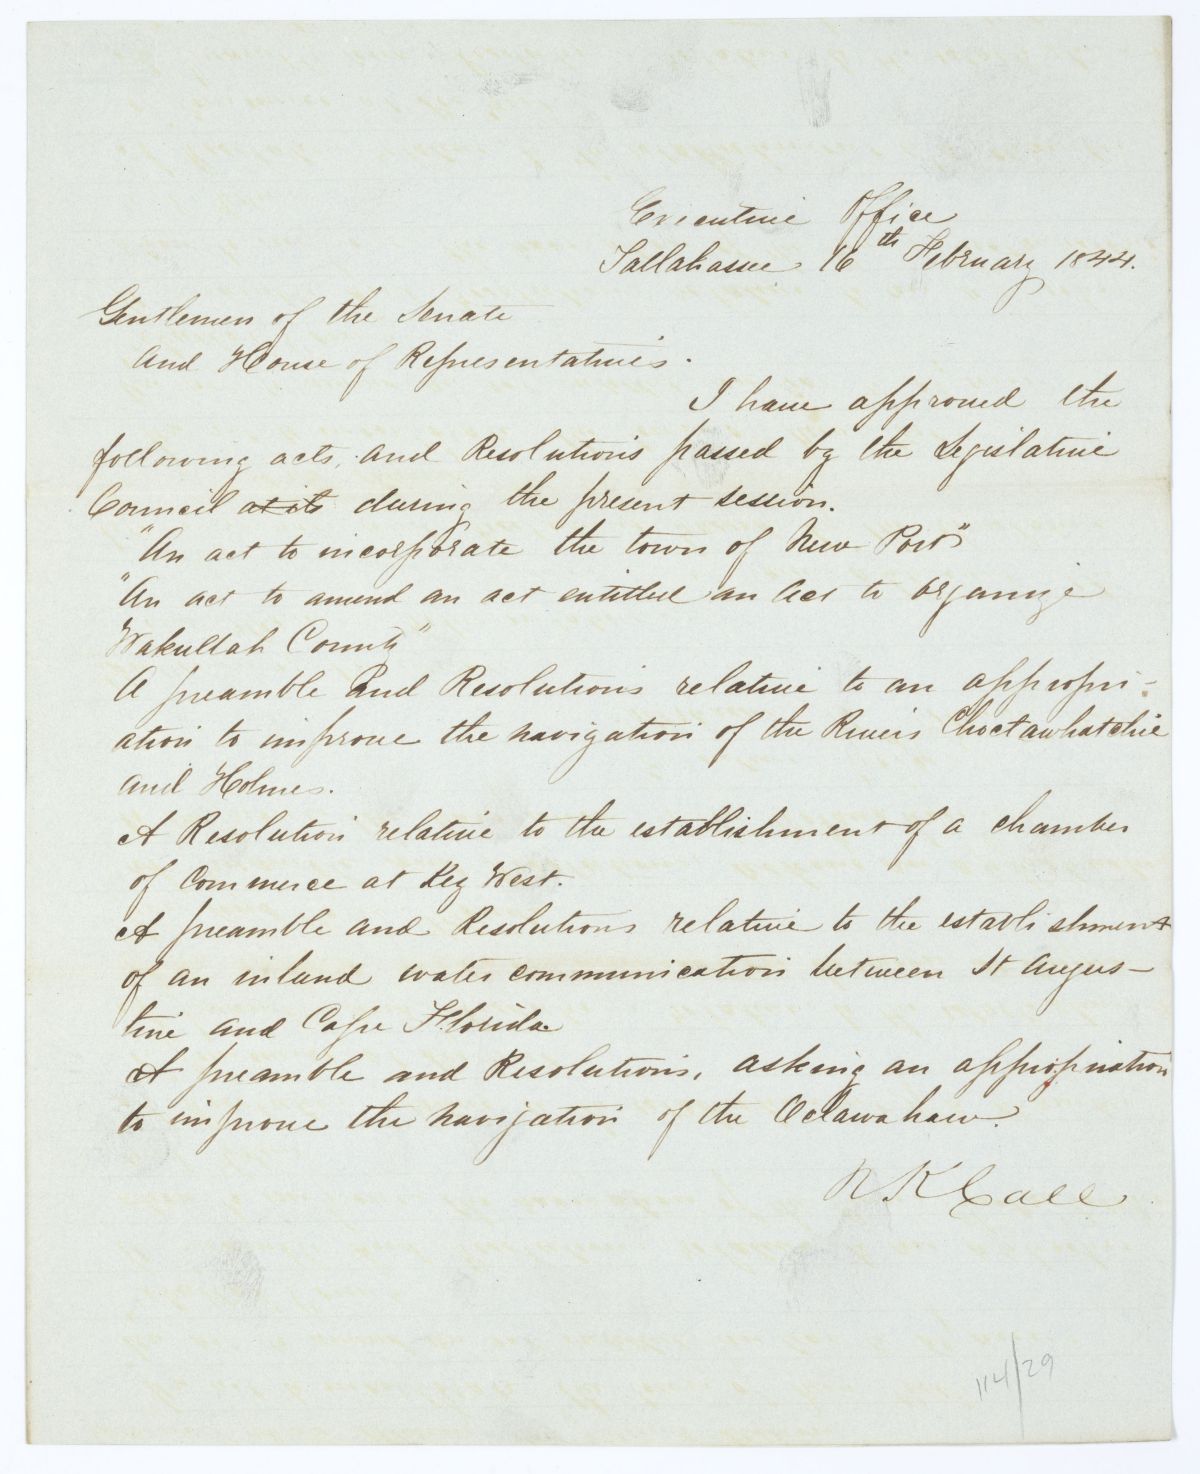 Executive Office
Tallahassee 16th February 1844.
Gentlemen of the Senate
and House of Representatives.
I have approved the
following acts, and Resolutions passed by the Legislative
Council at its during the present session.
"An act to incorporate the town of New Port"
"An act to amend an act entitled an act to organize
Wakullah County"
A preamble and Resolutions relative to an appropri-
ation to improve the navigation of the Rivers Choctawhatchie
and Holmes.
A Resolution relative to the establishment of a chamber
of Commerce at Key West.
A preamble and Resolutions relative to the establishment
of an inland water communication between St Augus-
tine and Cape Florida
A preamble and Resolutions, asking an appropriation
to improve the navigation of the Oclawahaw.
R K Call
114/29